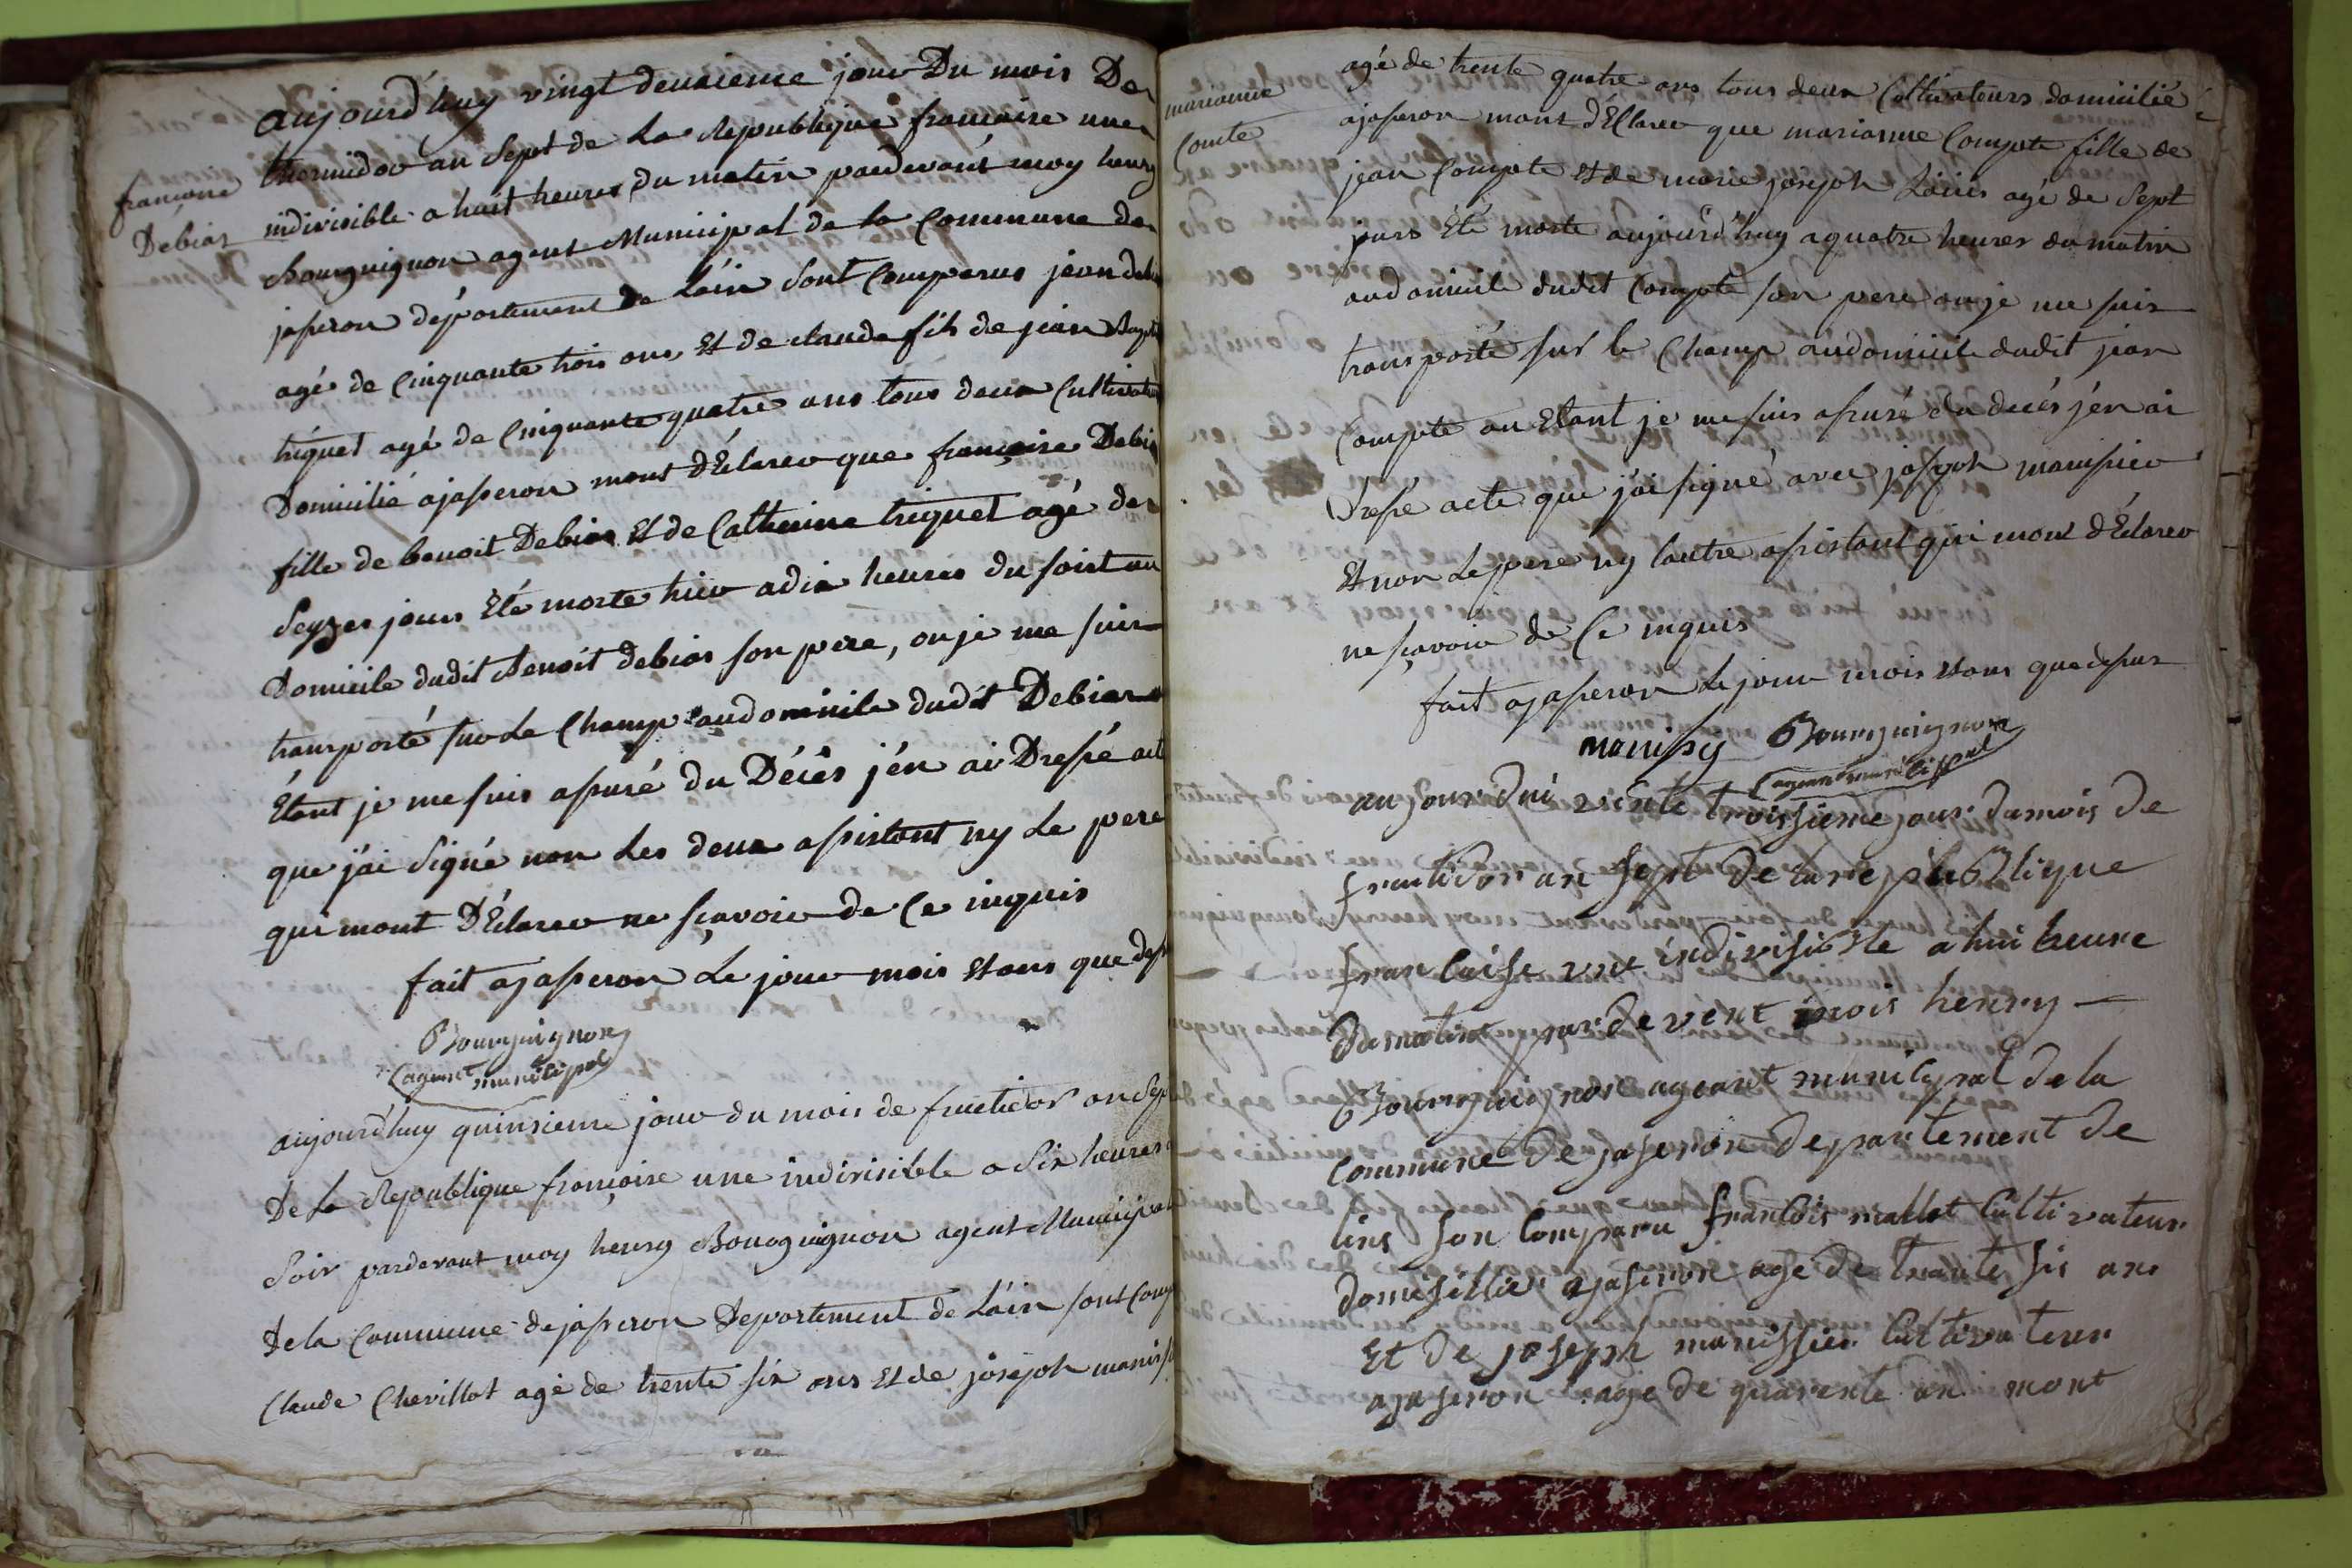 aujourd'huy vingt deuxieme jour Du mois De
thermidor an Sept de La Republique francaise une
francoise
Debias
indivisible a huit heures du matin pardevant moy henry
bourguignon agent Municipal de la Commune de
jasseron département de Láin Sont Comparus jean
agé de Cinquante trois ans Et de claude fils de jean
triquet agé de Cinquante quatre ans tous deux Cultivate
Domicilié ajasseron mont d'Éclarer que françoise Debia
fille de benoit Debias Et de Catherine triquet agé de
Seyzes jours Eté morte hier adix heures du soir au
Domicile dudit benoit debias son pere, ouje me suis
transporté sur Le Champ audomicile dudit Debias
Étant je me suis assuré du Décès j'én ai Dressé act
que j'ai Signé non Les deux assistant ny Le pere
qui mont D'Éclarer ne sçavoir de Ce inquis
fait ajasseron Le jour mois Etans que
Bourguignon
agent municipal
aujourd'huy quinsieme jour du mois de fructidor an Sep
De La Republique françoise une indivisible a Six heures
Soir pardevant moy henry Bourguignon agent Municipal
De la Commune dejasseron Departement de Láin sont Comp
Claude Chevillot agé de trente six ans Et de joseph
marianne
Comte
agé de trente quatre ans tous deux Cultivateurs domicilié
ajasseron mont d'Éclarer que marianne Compte fille de
jean Compte Et de marie joseph agé de Sept
jours Eté morte aujourd'huy aquatre heures du matin
audomicile dudit Compte son pere ouje me suis
transporté sur le Champ audomicile dudit jean
Compte ou Etant je me suis assuré du decés j'én ai
Dressé acte que j'ai signé avec joseph manissier
Et non Le pere ny lautre assistant qui mont d'Eclarer
ne sçavoir de Ce inquis
fait ajasseron Le jour mois Etans que dessus
manissy Bourguignon
agent municipal
aujourdui vente troissieme jour dumois de
fructidor an sept de la republique
francaise une indivisible a hui heure
du matin par devent mois henry
Bourguignon ageant municipal de la
commune de jaseron departement de
lins son comparu francois mallet Cultivateur
domisillier ajaseron age de trante sis ans
Et de joseph manissier Cultivateur
ajaseron age de quarente an mont